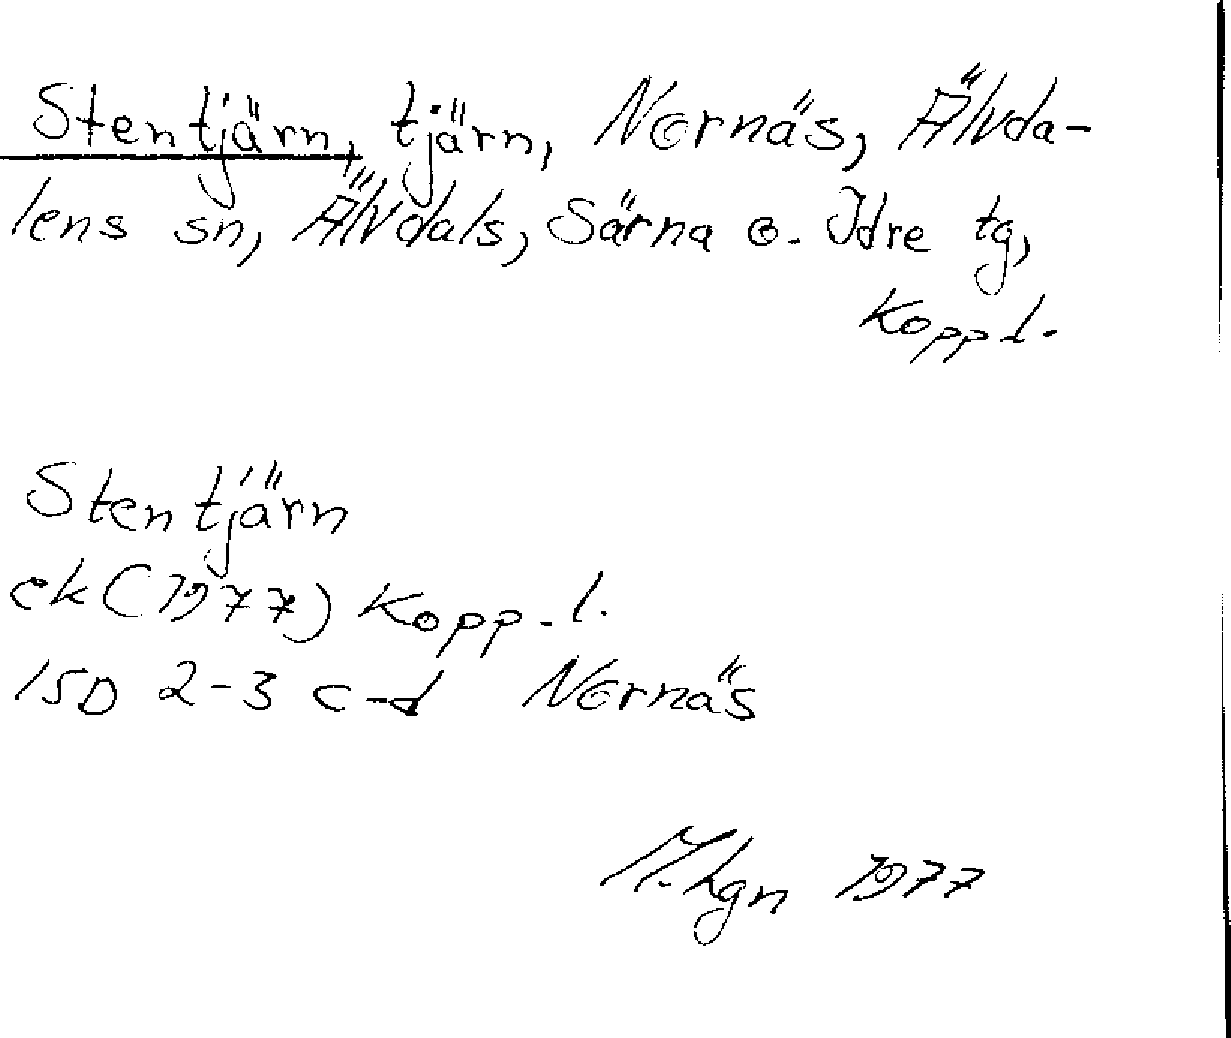 Stentjärn, tjärn, Nornäs, Älvda-
lens sn, Älvdals, Särna o. Idre tg,
Kopp l.
Stentjärn
ek (1977) Kopp. l.
15D 2-3 c-d Nornäs
1977